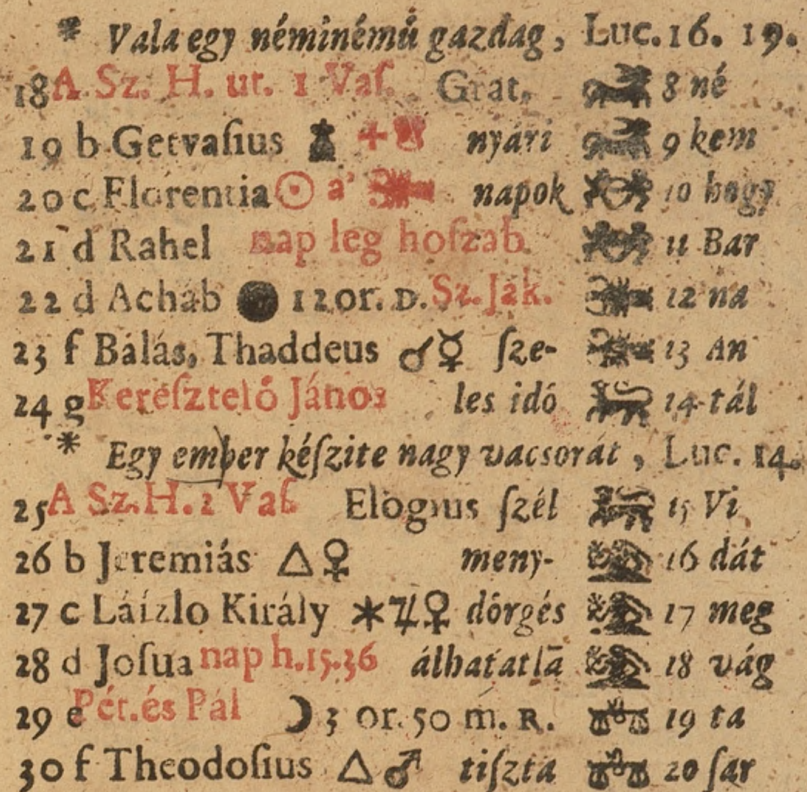 * Vala egy néminémű gazdag, Luc. 16. 19.
18 A Sz. H. ut. 1 Vaſ. Grat. 8 né
19 b Gervaſius nyári 9 kem
20 c Florentia ☉ a' napok 10 hogy
21 d Rahel nap leg hoſzab 11 Bar
22 d Achab 12 or. D. Sz. Ják. 12 na
23 f Balás, Thaddeus ♂ ☿ ſze- 13 An
24 g Kereſztelő János les idó 14 tál
* Egy ember kéſzite nagy vacsorát, Luc. 14.
25 A Sz. H. 2 Vaſ. Elogius ſzél 15 Vi
26 b Jeremiás △ ♀ meny- 16 dát
27 c Láſzlo Király ✶ ♃ ♀ dörgés 17 meg
28 d Joſua nap h. 15. 36 álhatatlā 18 vág
29 e Pét. és Pál ☽ 3 or. 50 m. R. 19 ta
30 f Theodoſius △ ♂ tiſzta 20 ſar